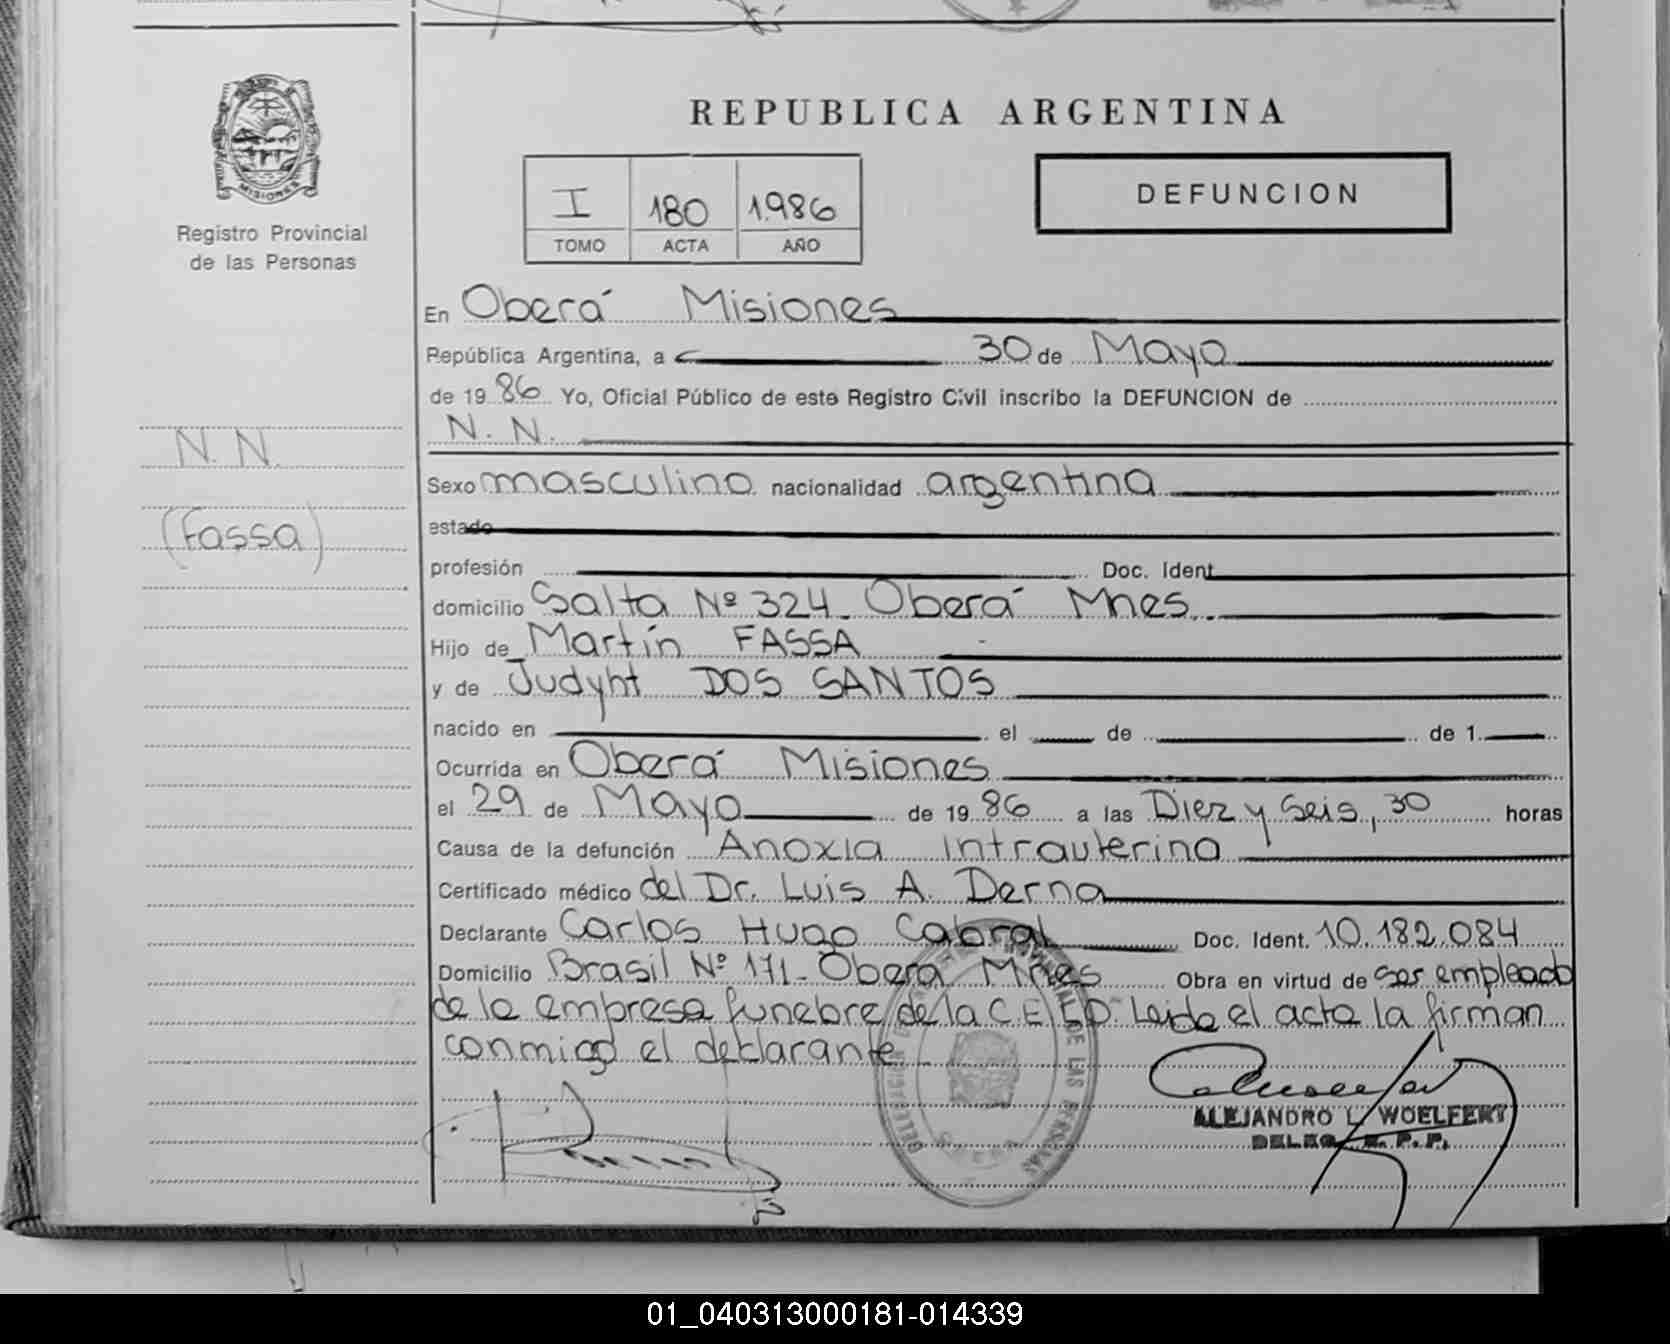 REPUBLICA ARGENTINA
MISIONES
Registro Provincial
de las Personas
I 180 1.986
TOMO ACTA AÑO
DEFUNCION
En Oberá Misiones
República Argentina, a 30 de Mayo
de 19 86 Yo, Oficial Público de este Registro Civil inscribo la DEFUNCION de
N. N.
N. N.
(Fassa)
Sexo masculino nacionalidad argentina
estado
profesión Doc. Ident.
domicilio Salta Nº 324. Oberá Mnes.
Hijo de Martín FASSA
y de Judyht DOS SANTOS
nacido en el de de 1
Ocurrida en Oberá Misiones
el 29 de Mayo de 19 86 a las Diez y Seis, 30 horas
Causa de la defunción Anoxia Intrauterina
Certificado médico del Dr. Luis A. Derna
Declarante Carlos Hugo Cabral Doc. Ident. 10.182.084
Domicilio Brasil Nº 171- Oberá Mnes Obra en virtud de ser empleado
de la empresa funebre de la C.E.L.O. Leida el acta la firman
conmigo el declarante
ALEJANDRO L. WOELFERT
DELEG. R. P. P.
DE LAS PERSONAS
01_040313000181-014339